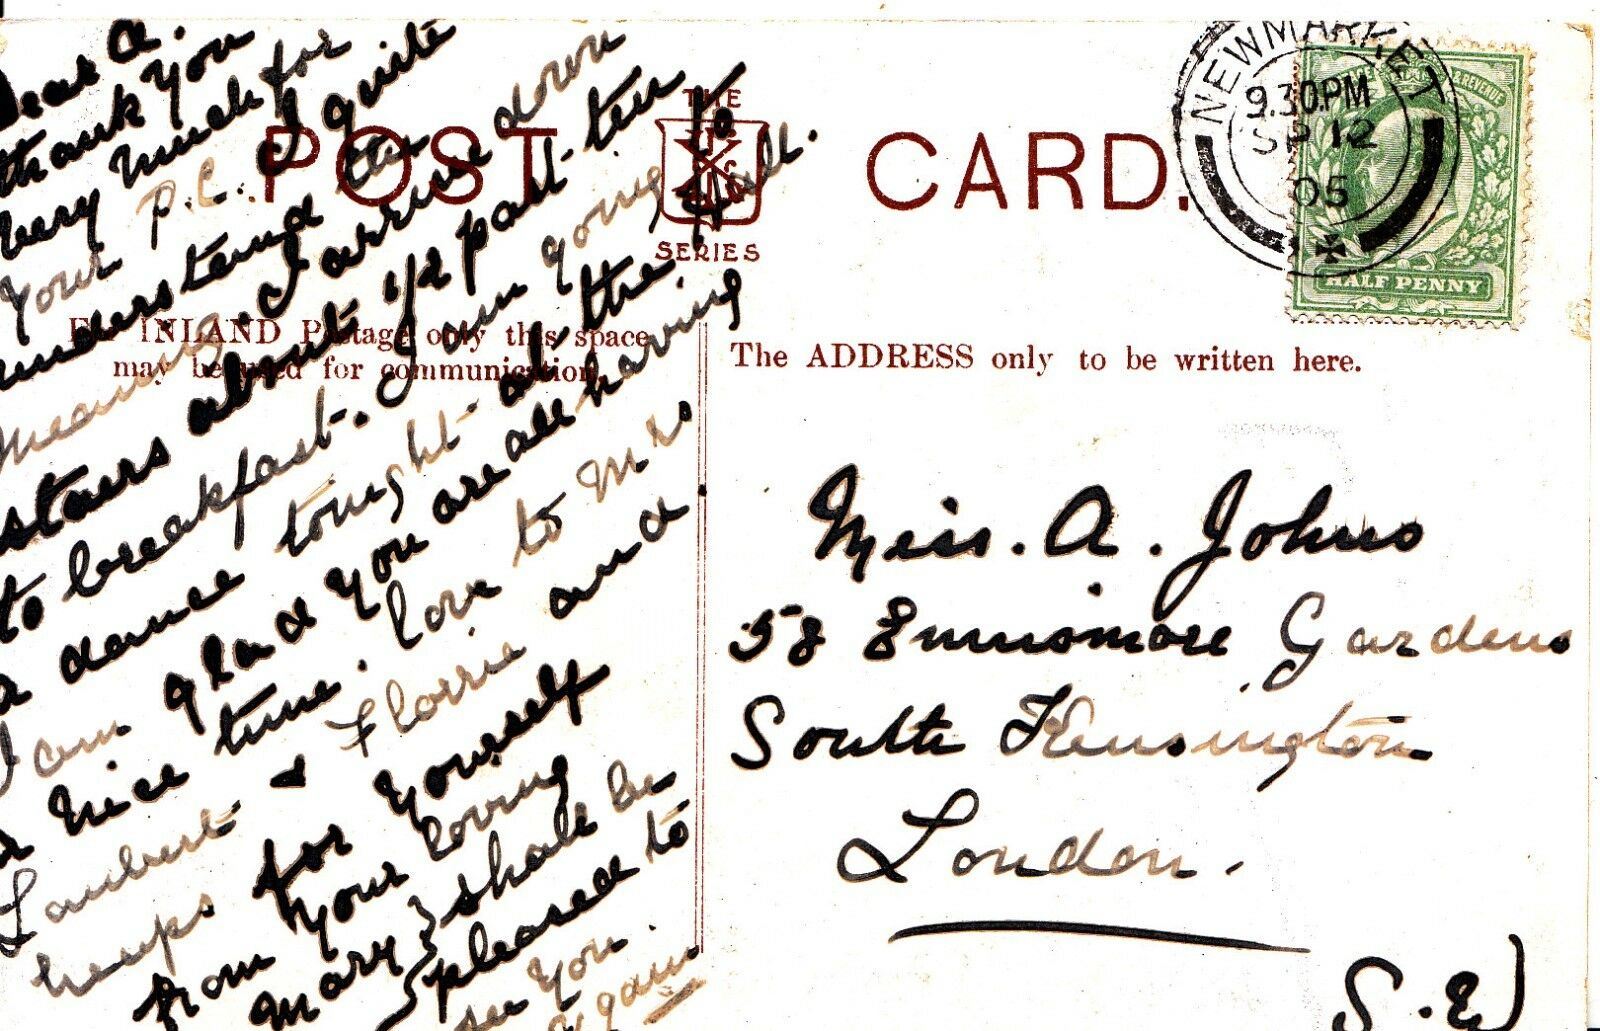 Dear A.
thank you
very much for
your P.C. I quite
understand the
meaning. I arrive down
stairs about 1/2 past ten
to breakfast. I am going to
a dance tonight at the Hall.
I am glad you are all having
a nice time. love to Mrs
Lambert & Florrie and a.
heaps for yourself
from your loving
Mary } shall be
pleased to
see you
again
POST CARD.
THE
SERIES
For INLAND Postage only this space
may be used for communication.
The ADDRESS only to be written here.
NEWMARKET
9.30PM
SP 12
05
& REVENUE
HALF PENNY
Miss. A. Johns
58 Ennismore Gardens
South Kensington
London.
S.E)